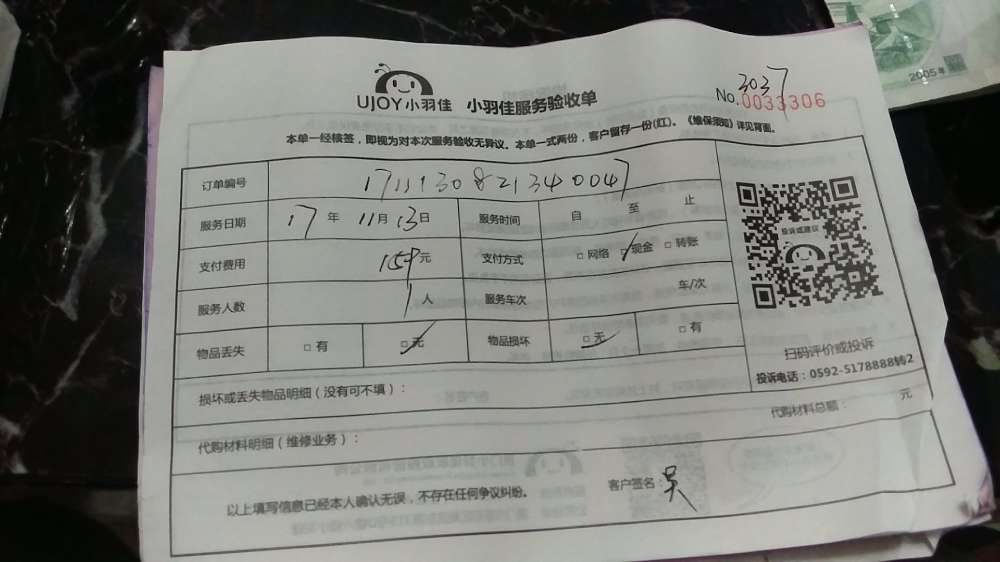 2005年
UJOY小羽佳 小羽佳服务验收单
3037
No.0033306
本单一经核签，即视为对本次服务验收无异议。本单一式两份，客户留存一份(红)。《维保须知》详见背面。
订单编号 1711130821340047
服务日期 17年 11月13日 服务时间 自 至 止
支付费用 159元 支付方式 □网络 □现金 □转账
服务人数 1人 服务车次 车/次
物品丢失 □有 □无 物品损坏 □无 □有
投诉或建议
扫码评价或投诉
投诉电话：0592-5178888转2
损坏或丢失物品明细（没有可不填）：
代购材料明细（维修业务）： 代购材料总额： 元
以上填写信息已经本人确认无误，不存在任何争议纠纷。 客户签名：吴